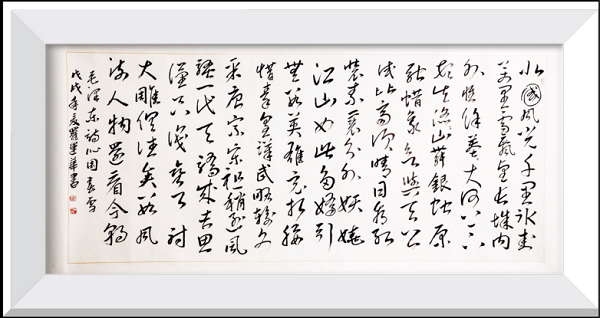 北國风光千里冰封
萬里雪飘望长城内
外惟馀莽莽大河上下
顿失滔滔山舞銀蛇原
驰蜡象欲与天公
试比高须晴日看红
装素裹分外妖娆
江山如此多娇引
無数英雄竞折腰
惜秦皇漢武略输文
采唐宗宋祖稍逊风
骚一代天骄成吉思
汗只识弯弓射
大雕俱往矣数风
流人物還看今朝
毛泽东词沁园春雪
戊戌年夏華书